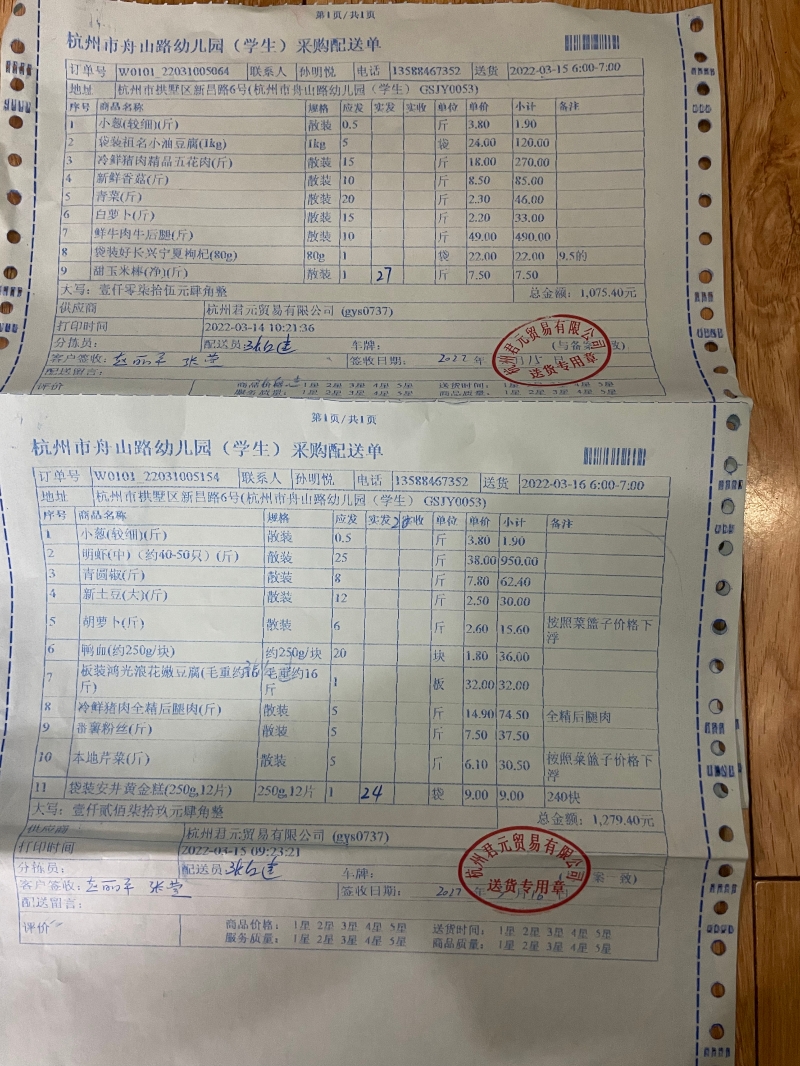 第1页/共1页
杭州市舟山路幼儿园（学生）采购配送单
订单号 W0101_22031005064 联系人 孙明悦 电话 13588467352 送货 2022-03-15 6:00-7:00
地址 杭州市拱墅区新昌路6号(杭州市舟山路幼儿园（学生） GSJY0053)
序号 商品名称 规格 应发 实发 实收 单位 单价 小计 备注
1 小葱(较细)(斤) 散装 0.5 斤 3.80 1.90
2 袋装祖名小油豆腐(1kg) 1kg 5 袋 24.00 120.00
3 冷鲜猪肉精品五花肉(斤) 散装 15 斤 18.00 270.00
4 新鲜香菇(斤) 散装 10 斤 8.50 85.00
5 青菜(斤) 散装 20 斤 2.30 46.00
6 白萝卜(斤) 散装 15 斤 2.20 33.00
7 鲜牛肉牛后腿(斤) 散装 10 斤 49.00 490.00
8 袋装好长兴宁夏枸杞(80g) 80g 1 袋 22.00 22.00 9.5的
9 甜玉米棒(净)(斤) 散装 1 27 斤 7.50 7.50
大写：壹仟零柒拾伍元肆角整 总金额：1,075.40元
供应商 杭州君元贸易有限公司 (gys0737)
打印时间 2022-03-14 10:21:36
分拣员： 配送员 车牌： (与备案 致)
客户签收： 赵丽平 张莹 签收日期： 2022 年 15
杭州君元贸易有限公司
送货专用章
配送留言：
评价 商品价格： 1星 2星 3星 4星 5星 送货时间： 1星 2星 3星 4星 5星
服务质量： 1星 2星 3星 4星 5星 商品质量： 1星 2星 3星 4星 5星
第1页/共1页
杭州市舟山路幼儿园（学生）采购配送单
订单号 W0101_22031005154 联系人 孙明悦 电话 13588467352 送货 2022-03-16 6:00-7:00
地址 杭州市拱墅区新昌路6号(杭州市舟山路幼儿园（学生） GSJY0053)
序号 商品名称 规格 应发 实发 实收 单位 单价 小计 备注
1 小葱(较细)(斤) 散装 0.5 斤 3.80 1.90
2 明虾(中)（约40-50只）(斤) 散装 25 斤 38.00 950.00
3 青圆椒(斤) 散装 8 斤 7.80 62.40
4 新土豆(大)(斤) 散装 12 斤 2.50 30.00
5 胡萝卜(斤) 散装 6 斤 2.60 15.60 按照菜篮子价格下浮
6 鸭血(约250g/块) 约250g/块 20 块 1.80 36.00
7 板装鸿光浪花嫩豆腐(毛重约16斤) 毛重约16斤 1 板 32.00 32.00
8 冷鲜猪肉全精后腿肉(斤) 散装 5 斤 14.90 74.50 全精后腿肉
9 番薯粉丝(斤) 散装 5 斤 7.50 37.50
10 本地芹菜(斤) 散装 5 斤 6.10 30.50 按照菜篮子价格下浮
11 袋装安井黄金糕(250g,12片) 250g,12片 1 24 袋 9.00 9.00 240快
大写：壹仟贰佰柒拾玖元肆角整 总金额：1,279.40元
供应商 杭州君元贸易有限公司 (gys0737)
打印时间 2022-03-15 09:23:21
分拣员： 配送员 车牌： 案一致)
客户签收： 赵丽平 张莹 签收日期： 年 月 16
杭州君元贸易有限公司
送货专用章
配送留言：
评价 商品价格： 1星 2星 3星 4星 5星 送货时间： 1星 2星 3星 4星 5星
服务质量： 1星 2星 3星 4星 5星 商品质量： 1星 2星 3星 4星 5星